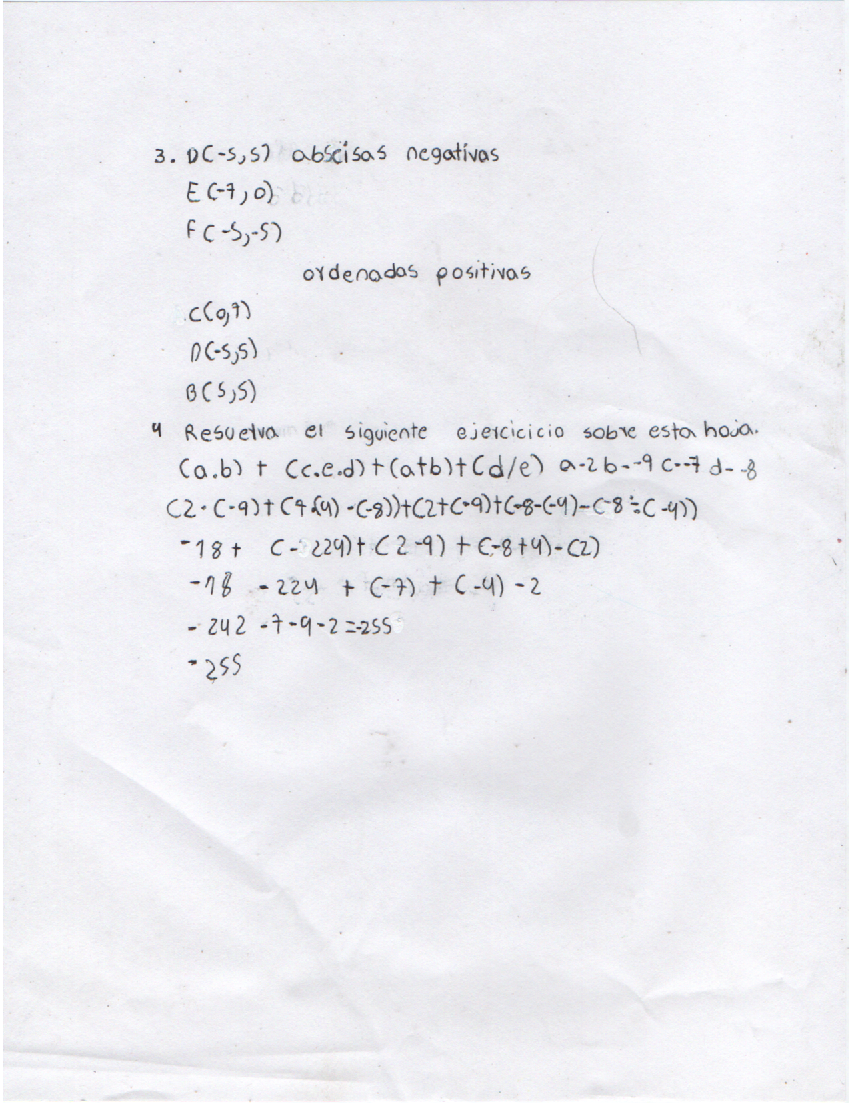 3. D(-5,5) abscisas negativas
E(-7,0)
F(-5,-5)
ordenadas positivas
C(0,7)
D(-5,5)
B(5,5)
4 Resuelva el siguiente ejercicicio sobre esta hoja.
(a.b) + (c.e.d)+(a+b)+(d/e) a-2 b--9 c--7 d--8
(2·(-9)+(7.(4)-(-8))+(2+(-9)+(-8-(-4)-(-8÷(-4))
-18+ (-224)+(2-9)+(-8+4)-(2)
-18 -224 + (-7) + (-4) -2
-242 -7-9-2=-255
-255